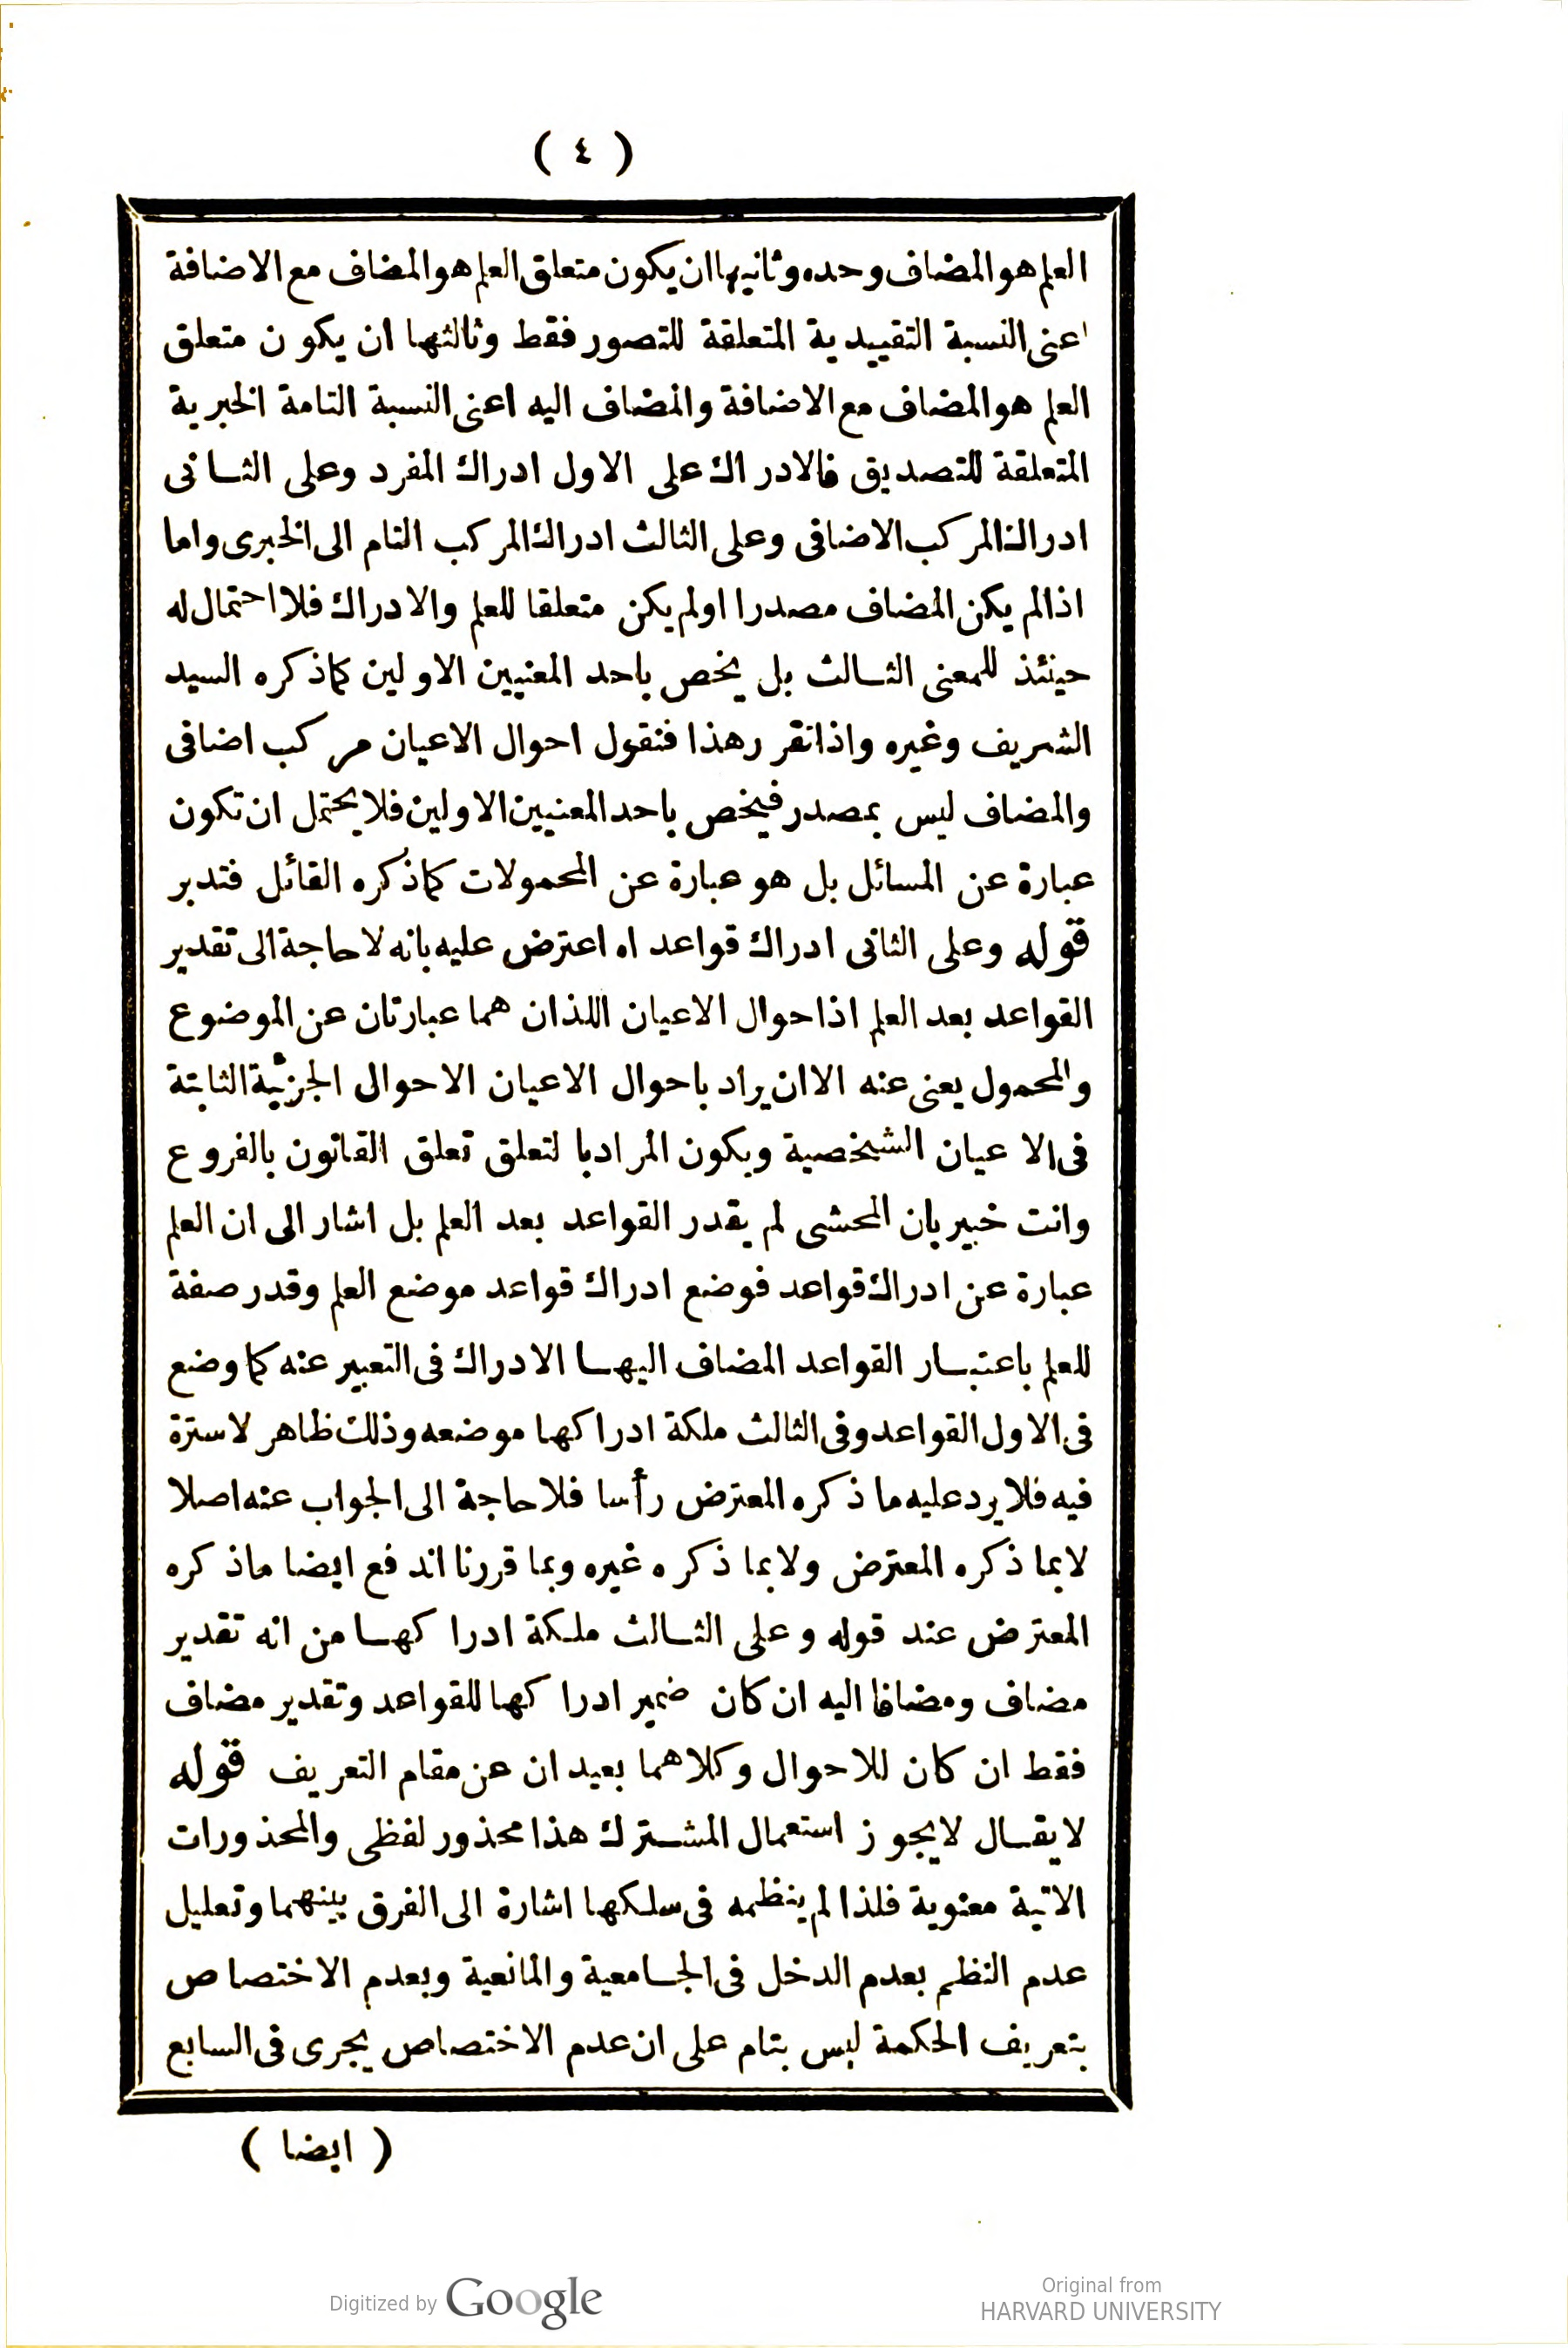 ( ٤ )
العلم هو المضاف وحده وثانيها ان يكون متعلق العلم هو المضاف مع الاضافة
اعنى النسبة التقييدية المتعلقة للتصور فقط وثالثها ان يكون متعلق
العلم هو المضاف مع الاضافة والمضاف اليه اعنى النسبة التامة الخبرية
المتعلقة للتصديق فالادراك على الاول ادراك المفرد وعلى الثانى
ادراك المركب الاضافى وعلى الثالث ادراك المركب التام الى الخبرى واما
اذا لم يكن المضاف مصدرا اولم يكن متعلقا للعلم والادراك فلا احتمال له
حينئذ للمعنى الثالث بل يخص باحد المعنيين الاولين كماذكره السيد
الشريف وغيره واذا تقرر هذا فنقول احوال الاعيان مركب اضافى
والمضاف ليس بمصدر فيخص باحد المعنيين الاولين فلا يحتمل ان تكون
عبارة عن المسائل بل هو عبارة عن المحمولات كماذكره القائل فتدبر
قوله وعلى الثانى ادراك قواعد اه اعترض عليه بانه لا حاجة الى تقدير
القواعد بعد العلم اذا حوال الاعيان اللذان هما عبارتان عن الموضوع
والمحمول يعنى عنه الا ان يراد باحوال الاعيان الاحوال الجزئية الثابتة
فى الاعيان الشخصية ويكون المراد بالتعلق تعلق القانون بالفروع
وانت خبير بان المحشى لم يقدر القواعد بعد العلم بل اشار الى ان العلم
عبارة عن ادراك قواعد فوضع ادراك قواعد موضع العلم وقدر صفة
للعلم باعتبار القواعد المضاف اليها الادراك فى التعبير عنه كما وضع
فى الاول القواعد وفى الثالث ملكة ادراكها موضعه وذلك ظاهر لاسترة
فيه فلا يرد عليه ما ذكره المعترض رأسا فلا حاجة الى الجواب عنه اصلا
لابما ذكره المعترض ولابما ذكره غيره وبما قررنا اندفع ايضا ماذكره
المعترض عند قوله وعلى الثالث ملكة ادراكها من انه تقدير
مضاف ومضافا اليه ان كان ضمير ادراكها للقواعد وتقدير مضاف
فقط ان كان للاحوال وكلاهما بعيدان عن مقام التعريف قوله
لايقال لايجوز استعمال المشترك هذا محذور لفظى والمحذورات
الاتية معنوية فلذا لم ينظمه فى سلكها اشارة الى الفرق بينهما وتعليل
عدم النظم بعدم الدخل فى الجامعية والمانعية وبعدم الاختصاص
بتعريف الحكمة ليس بتام على ان عدم الاختصاص يجرى فى السابع
( ايضا )
Digitized by Google
Original from
HARVARD UNIVERSITY